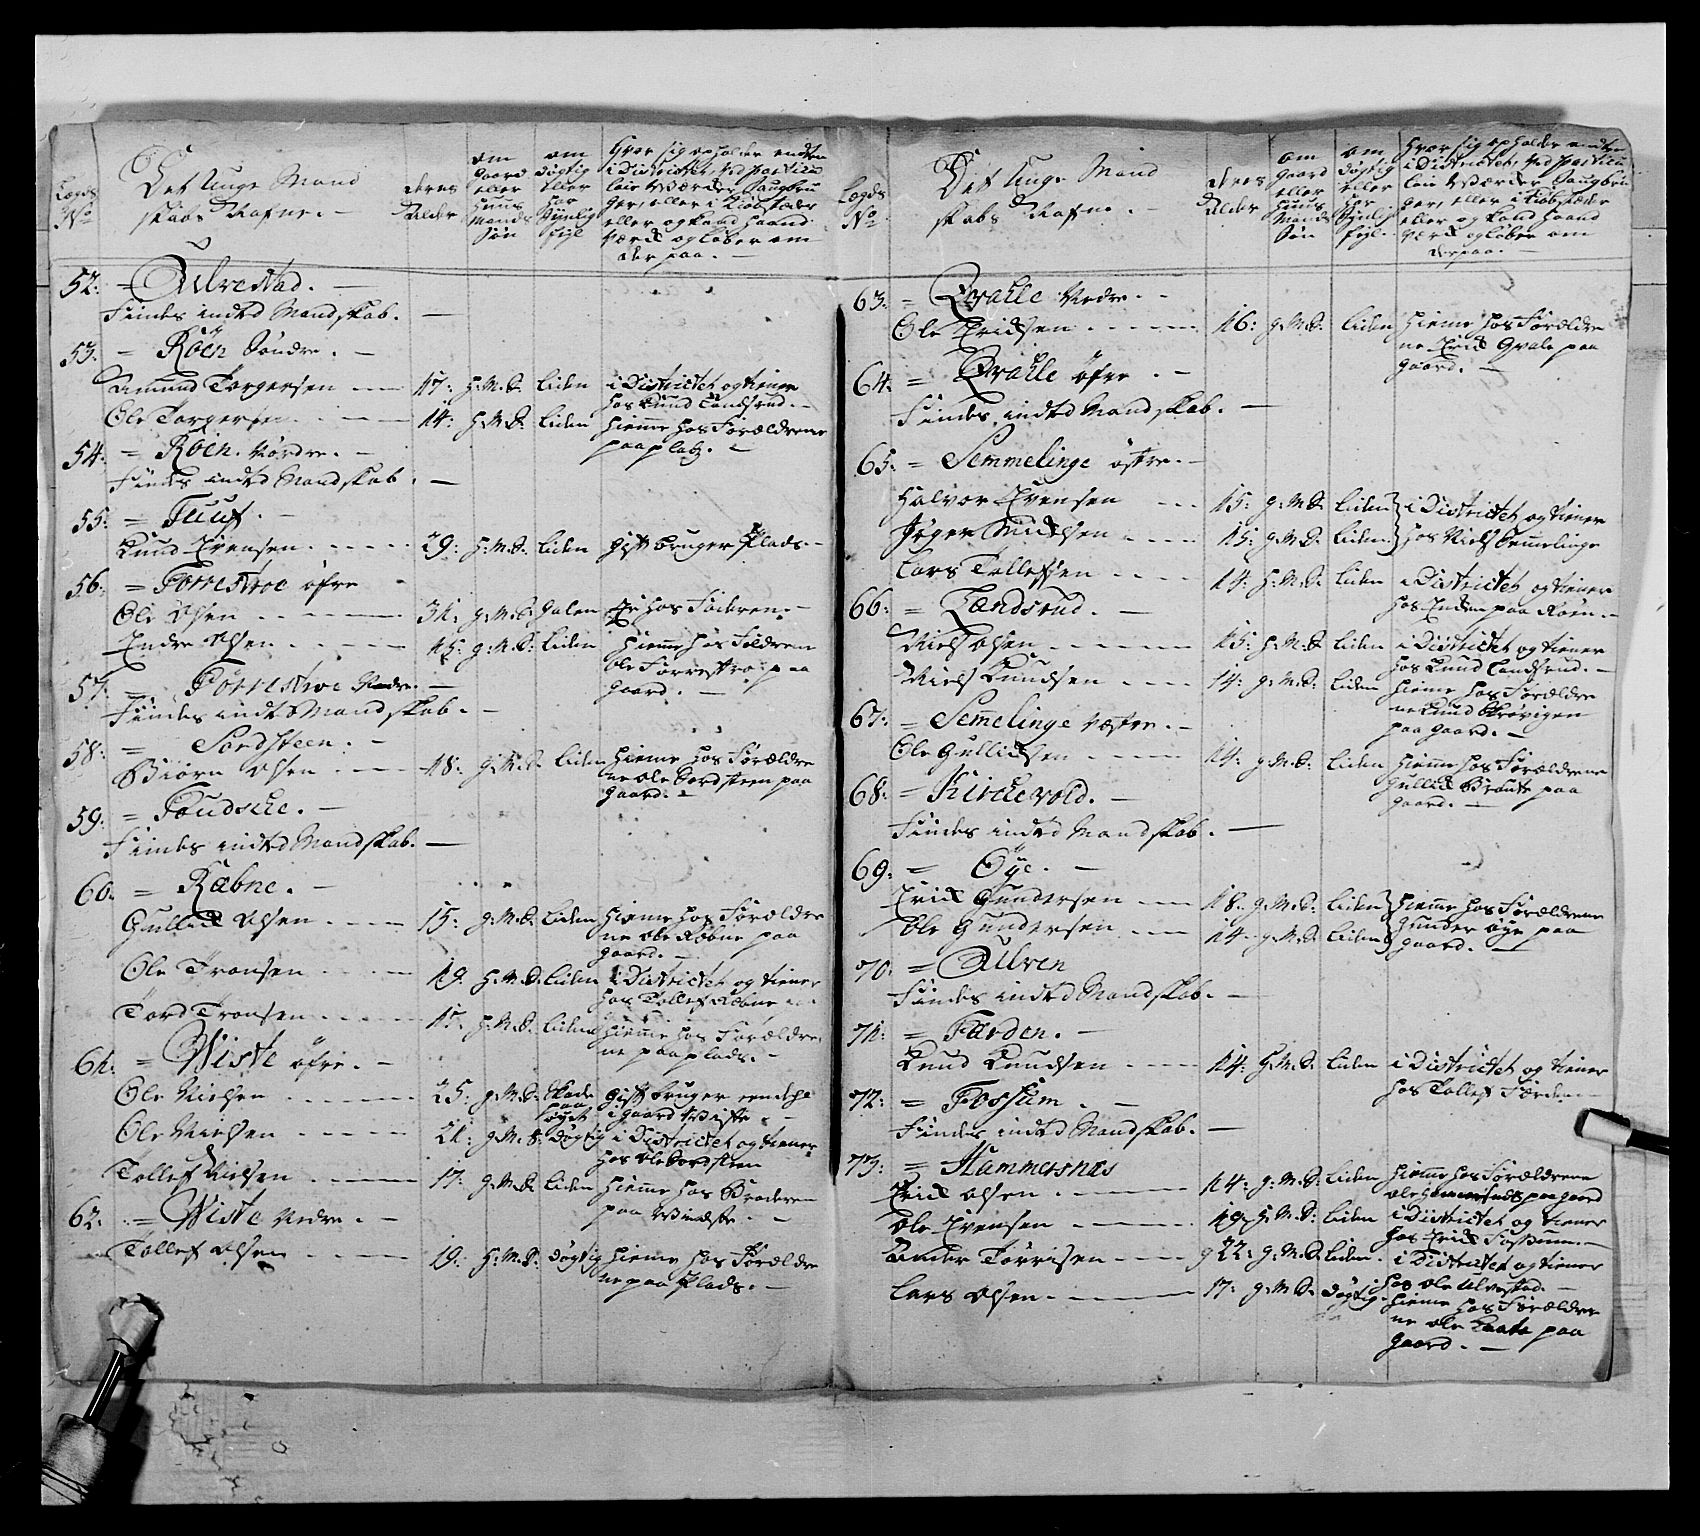 Legds No
Det Unge Mand
skabs Nafne. —
deres Alder
om Gaard eller Huus Mands Søn
om døgtig eller har Synlig fejl
hvor sig opholder enten
i Districtet, ved particu
lair Værder, Saugbru
ger, eller i Kiøbstæder
eller og kand haand
værk og løber om
der paa. —
52: = Ulvestad. —
Findes intet Mandskab. —
53: = Röen Søndre. —
Amund Torgersen 17: H: M: S: Liden i Districtet og tiener
hos Knud Landsrud. —
Ole Torgersen 14: H: M: S: Liden hiemme hos Forældrene
paa platz. —
54: = Röen Nørdre. —
Findes intet Mandskab. —
55: = Tuuf. —
Knud Evensen 29: H: M: S: Liden gift bruger Plads. —
56: = Forrestroe öfre
Ole Olsen 31: g: M: S: Galen Er hos Faderen. —
Endre Olsen 15: g: M: S: Liden hiemme hos Foreldrene
Ole Forrestroe paa
gaard. —
57: = Forrestroe Nedre. —
Findes intet Mandskab. —
58: = Sordsteen. —
Biørn Olsen 18: g: M: S: Liden hiemme hos Forældre
ne Ole Sordsteen paa
gaard. —
59: = Foudsche. —
Findes intet Mandskab. —
60: = Ræbne. —
Gullick Olsen 15: g: M: S: Liden hiemme hos Forældre
ne Ole Robne paa
gaard. —
Ole Tronsen 19: H: M: S: Liden i Districtet og tiener
hos Tollef Robne
Tord Tronsen 15: H: M: S: Liden hiemme hos Forældre
ne paa plads. —
61: = Wiste öfre. —
Ole Nielsen 25: g: M: S: skade paa øyet gift bruger een deel
i gaard Wiste. —
Ole Nielsen 21: g: M: S: Døgtig i Districtet og tiener
hos Ole Sordsteen
Tollef Nielsen 17: g: M: S: Liden hiemme hos Broderen
paa Wiste. —
62: = Wiste Nedre. —
Tollef Olsen 19: H: M: S: Døgtig hiemme hos Forældre
ne paa Plads. —
Legds No
Det Unge Mand
skabs Nafne. —
deres Alder
om Gaard eller Huus Mands Søn
om døgtig eller har Synlig fejl.
hvor sig opholder enten
i Districtet, ved particu
lair Værder, Saugbru
ger, eller i Kiøbstæder
eller og kand haand
værk og løber om
der paa. —
63: = Qvahle Nedre. —
Ole Erichsen 16: g: M: S: Liden hiemme hos Forældre
ne Erick Qvale paa
gaard. —
64: = Qvahle öfre. —
Findes intet Mandskab. —
65: = Semmelinge östre. —
Halvor Evensen 15: g: M: S: Liden } i Districtet og tiener
15: g: M: S: Liden } hos Niels Semmelinge
Lars Tollefsen 14: H: M: S: Liden i Districtet og tiener
hos Endre paa Roen. —
66: = Landsrud. —
Niels Olsen 15: H: M: S: Liden i Districtet og tiener
hos Knud Landsrud. —
Niels Knudsen 14: g: M: S: Liden hiemme hos Forældre
ne Knud paa gaard. —
67: = Semelinge Vestre. —
Ole Gullicksen 14: g: M: S: Liden hiemme hos Forældrene
Gullick Broute paa
gaard. —
68: = Kirchevold. —
Findes intet Mandskab. —
69: = Öye. —
Erick Gundersen 18: g: M: S: Liden } hiemme hos Forældrene
Ole Gundersen 14: g: M: S: Liden } Gunder öye paa
gaard. —
70: = Ulven
Findes intet Mandskab. —
71: = Færden. —
Knud Knudsen 14: H: M: S: Liden i Districtet og tiener
hos Tollef Færden. —
72: = Fossum. —
Findes intet Mandskab. —
73: = Hammersnæs
Erick Olsen 14: g: M: S: Liden hiemme hos Forældrene
Ole Hammersnæs paa gaard
Ole Evensen 19: H: M: S: Liden i Districtet og tiener
hos Erick Fossum. —
Ander Torrisen 22: g: M: S: Liden i Districtet og tiener
hos Ole Ulvestad. —
Lars Olsen 17: g: M: S: Døgtig hiemme hos Forældre
ne Ole paa
gaard. —